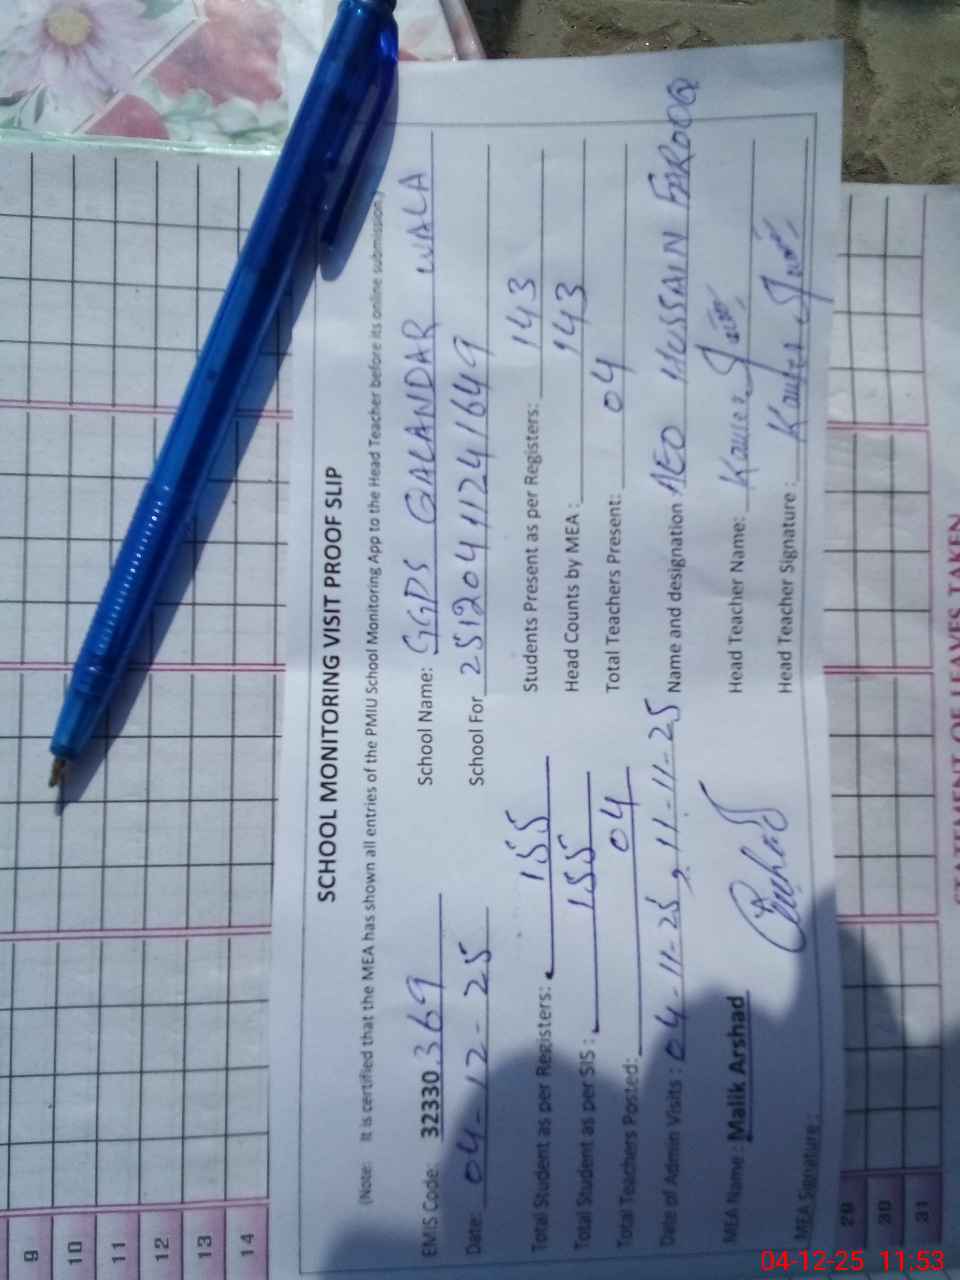 SCHOOL MONITORING VISIT PROOF SLIP
(Note: It is certified that the MEA has shown all entries of the PMIU School Monitoring App to the Head Teacher before its online submission)
EMIS Code: 32330 369 School Name: GGPS QALANDAR WALA
Date: 04-12-25 School For 25120411241649
Total Student as per Registers: 155 Students Present as per Registers: 143
Total Student as per SIS : 155 Head Counts by MEA : 143
Total Teachers Posted: 04 Total Teachers Present: 04
Date of Admin Visits : 04-11-25, 11-11-25 Name and designation AEO HUSSAIN FAROOQ
MEA Name : Malik Arshad Head Teacher Name: Kauser
MEA Signature : Head Teacher Signature : Kauser
9
10
11
12
13
14
29
30
31
STATEMENT OF LEAVES TAKEN
04-12-25 11:53